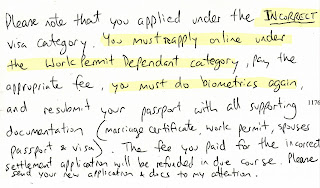 Please note that you applied under the INCORRECT
visa category. You must reapply online under
the Work Permit Dependant category, pay the
appropriate fee, you must do biometrics again,
and resubmit your passport with all supporting
1176
documentation (marriage certificate, work permit, spouses
passport & visa). The fee you paid for the incorrect
settlement application will be refunded in due course. Please
send your new application & docs to my attention.